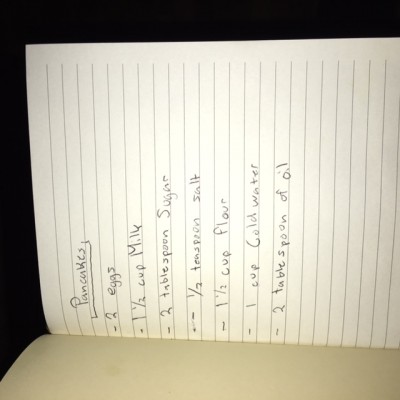 Pancakes
- 2 eggs
- 1 1/2 cup Milk
- 2 tablespoon Sugar
- 1/2 teaspoon salt
- 1 1/2 cup flour
- 1 cup Cold water
- 2 tablespoon of oil